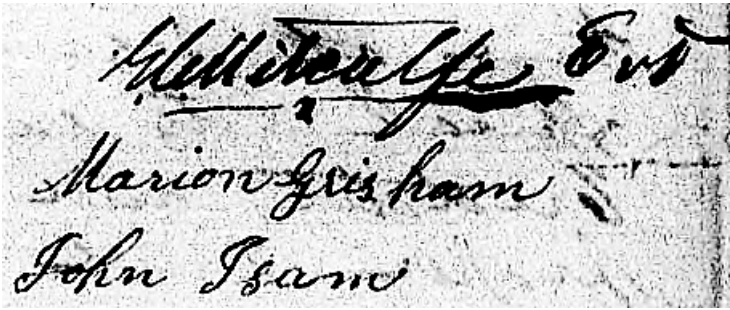 Metcalfe
Marion Grisham
John Isam